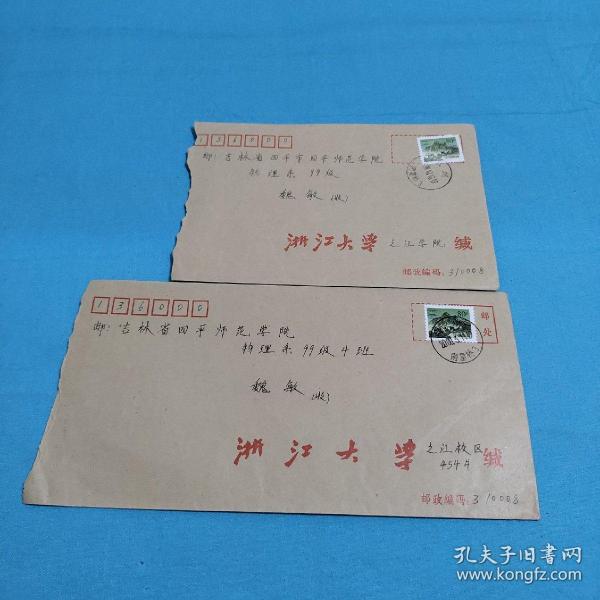 136000
邮:吉林省四平市四平师范学院
物理系 99级
魏敏(收)
浙江大学 之江学院 缄
邮政编码:310008
80分
136000
邮:吉林省四平师范学院
物理系99级4班
魏敏(收)
浙江大学 之江校区 缄
454#
邮政编码:310008
80分
邮
处
孔夫子旧书网
www.kongfz.com